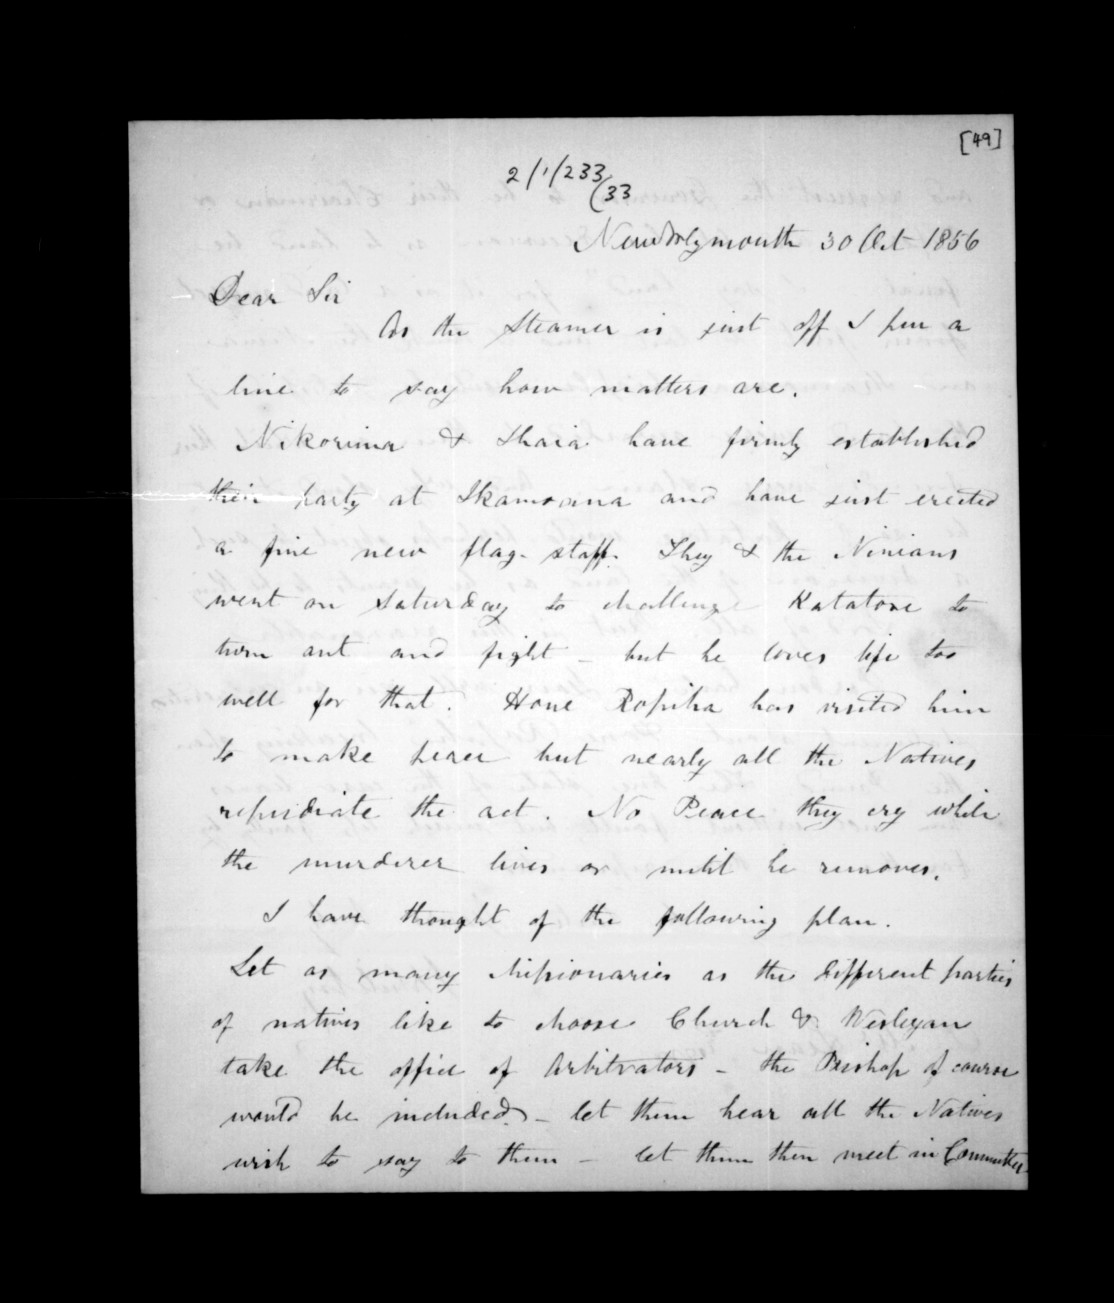 [49]
2/1/233
(33
New Plymouth 30 Oct 1856
Dear Sir
As the Steamer is just off I pen a
line to say how matters are.
Nikorima & Ihaia have firmly established
their party at Ikamoana and have just erected
a fine new flag-staff. They & the Ninians
went on Saturday to challenge Katatore to
turn out and fight – but he loves life too
well for that. Hone Ropiha has visited him
to make peace but nearly all the Natives
repudiate the act. No Peace they cry while
the murderer lives or until he removes.
I have thought of the following plan.
Let as many Missionaries as the different parties
of natives like to choose Church & Wesleyan
take the office of Arbitrators – the Bishop of course
would be included – let them hear all the Natives
wish to say to them – let them then meet in Committee